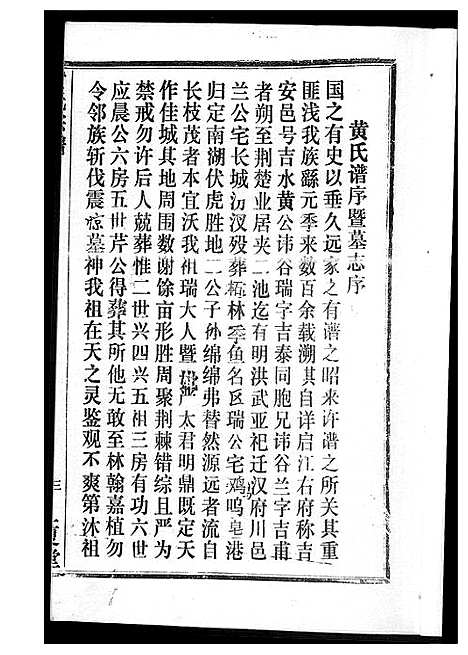 黄氏谱序暨墓志序
国之有史以垂久远家之有谱之昭来许谱之所关其重
匪浅我族繇元季来数百余载溯其自详启江右府称吉
安邑号吉水黄公讳谷瑞字吉泰同胞兄讳谷兰字吉甫
者朔至荆楚业居夹二池迄有明洪武亚祀迁汉府川邑
兰公宅长城汈汊殁葬栢林季鱼名区瑞公宅鸡鸣皂港
归定南湖伏虎胜地二公子孙绵绵弗替然源远流自
长枝茂者本宜沃我祖瑞大人暨严太君明鼎既定天
作佳城其地周围数谢馀亩形胜周聚荆棘错综且严为
禁戒勿许后人兢葬惟二世兴四兴五祖三房有功六世
应晨公六房五世芹公得葬其所他无敢至林翰嘉植勿
令邻族斩伐震惊墓神我祖在天之灵鉴观不爽第沐祖
三